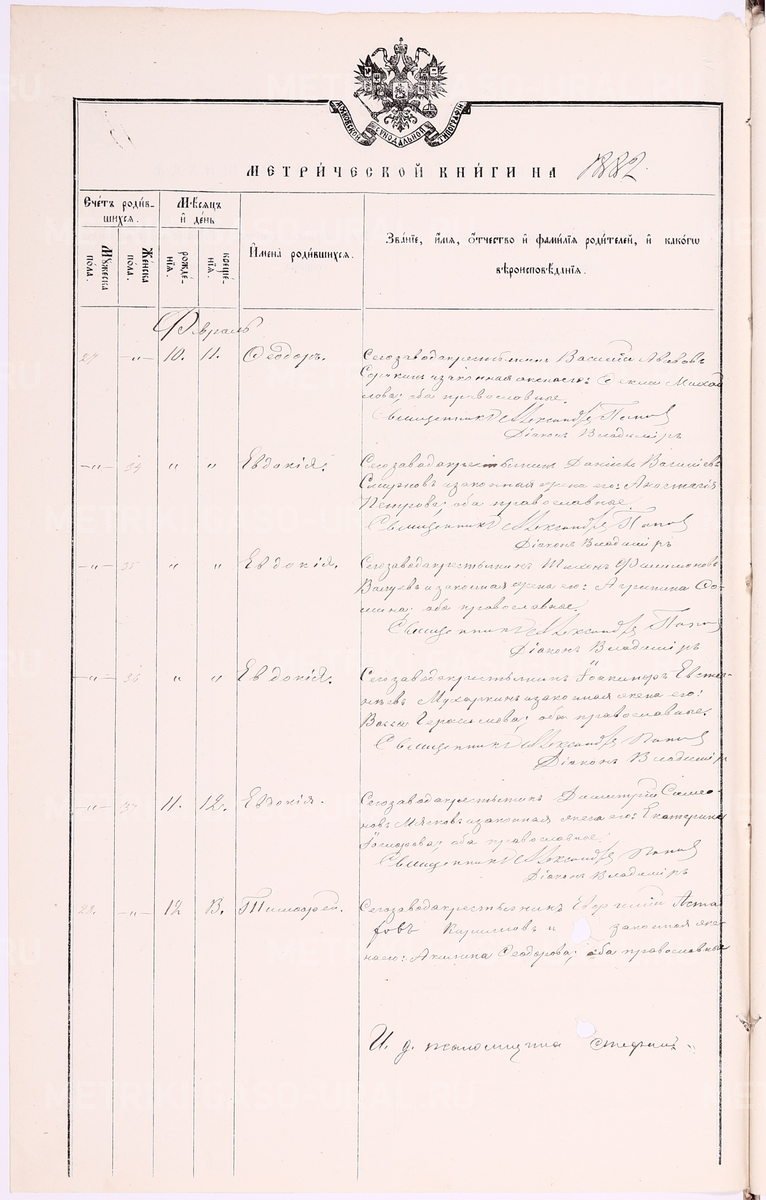 МОСКОВСКОЙ СѴНОДАЛЬНОЙ ТИПОГРАФІИ
МЕТРИ́ЧЕСКОЙ КНИ́ГИ НА 1882.
Сче́тъ роди́в-
шихсѧ.
Мꙋ́жеска
по́ла.
Же́нска
по́ла.
Мѣ́сѧцъ
и҆ де́нь
рожде́-
нїѧ.
креще́-
нїѧ.
И҆мена̀ роди́вшихсѧ.
Зва́нїе, и҆́мѧ, ѻ҆́тчество и҆ фами́лїѧ роди́телей, и҆ како́гѡ
вѣроисповѣ́данїѧ.
Февраль
27 —„— 10. 11. Ѳеодоръ. Сегозаводакрестьянинъ Василій
Сорокинъ изаконная женаего: Ѳекла Михай
лова; оба православные.
Священникъ Александръ Поповъ
Діаконъ Владиміръ
—„— 34 „ „ Евдокія. Сегозаводакрестьянинъ Василіевъ
Смирновъ изаконная жена его: Анастасія
Петрова; оба православные.
Священникъ Александръ Поповъ
Діаконъ Владиміръ
—„— 35 „ „ Евдокія. Сегозаводакрестьянинъ
изаконная жена его: Агрипина
оба православные.
Священникъ Александръ Поповъ
Діаконъ Владиміръ
—„— 36 „ „ Евдокія. Сегозаводакрестьянинъ
Мухаркинъ изаконная жена его:
Васса Герасимова; оба православные.
Священникъ Александръ Поповъ
Діаконъ Владиміръ
—„— 37 11. 12. Евдокія. Сегозаводакрестьянинъ Димитрій Симео-
новъ изаконная жена его: Екатерина
оба православные.
Священникъ Александръ Поповъ
Діаконъ Владиміръ
28. —„— 12 13. Тимофей. Сегозаводакрестьянинъ Евгеній Аста
фовъ Кирилловъ и законная же-
наего: Акилина Ѳеодорова; оба православные
И. д. псаломщика Стефанъ
METRIKI.GASO-URAL.RU